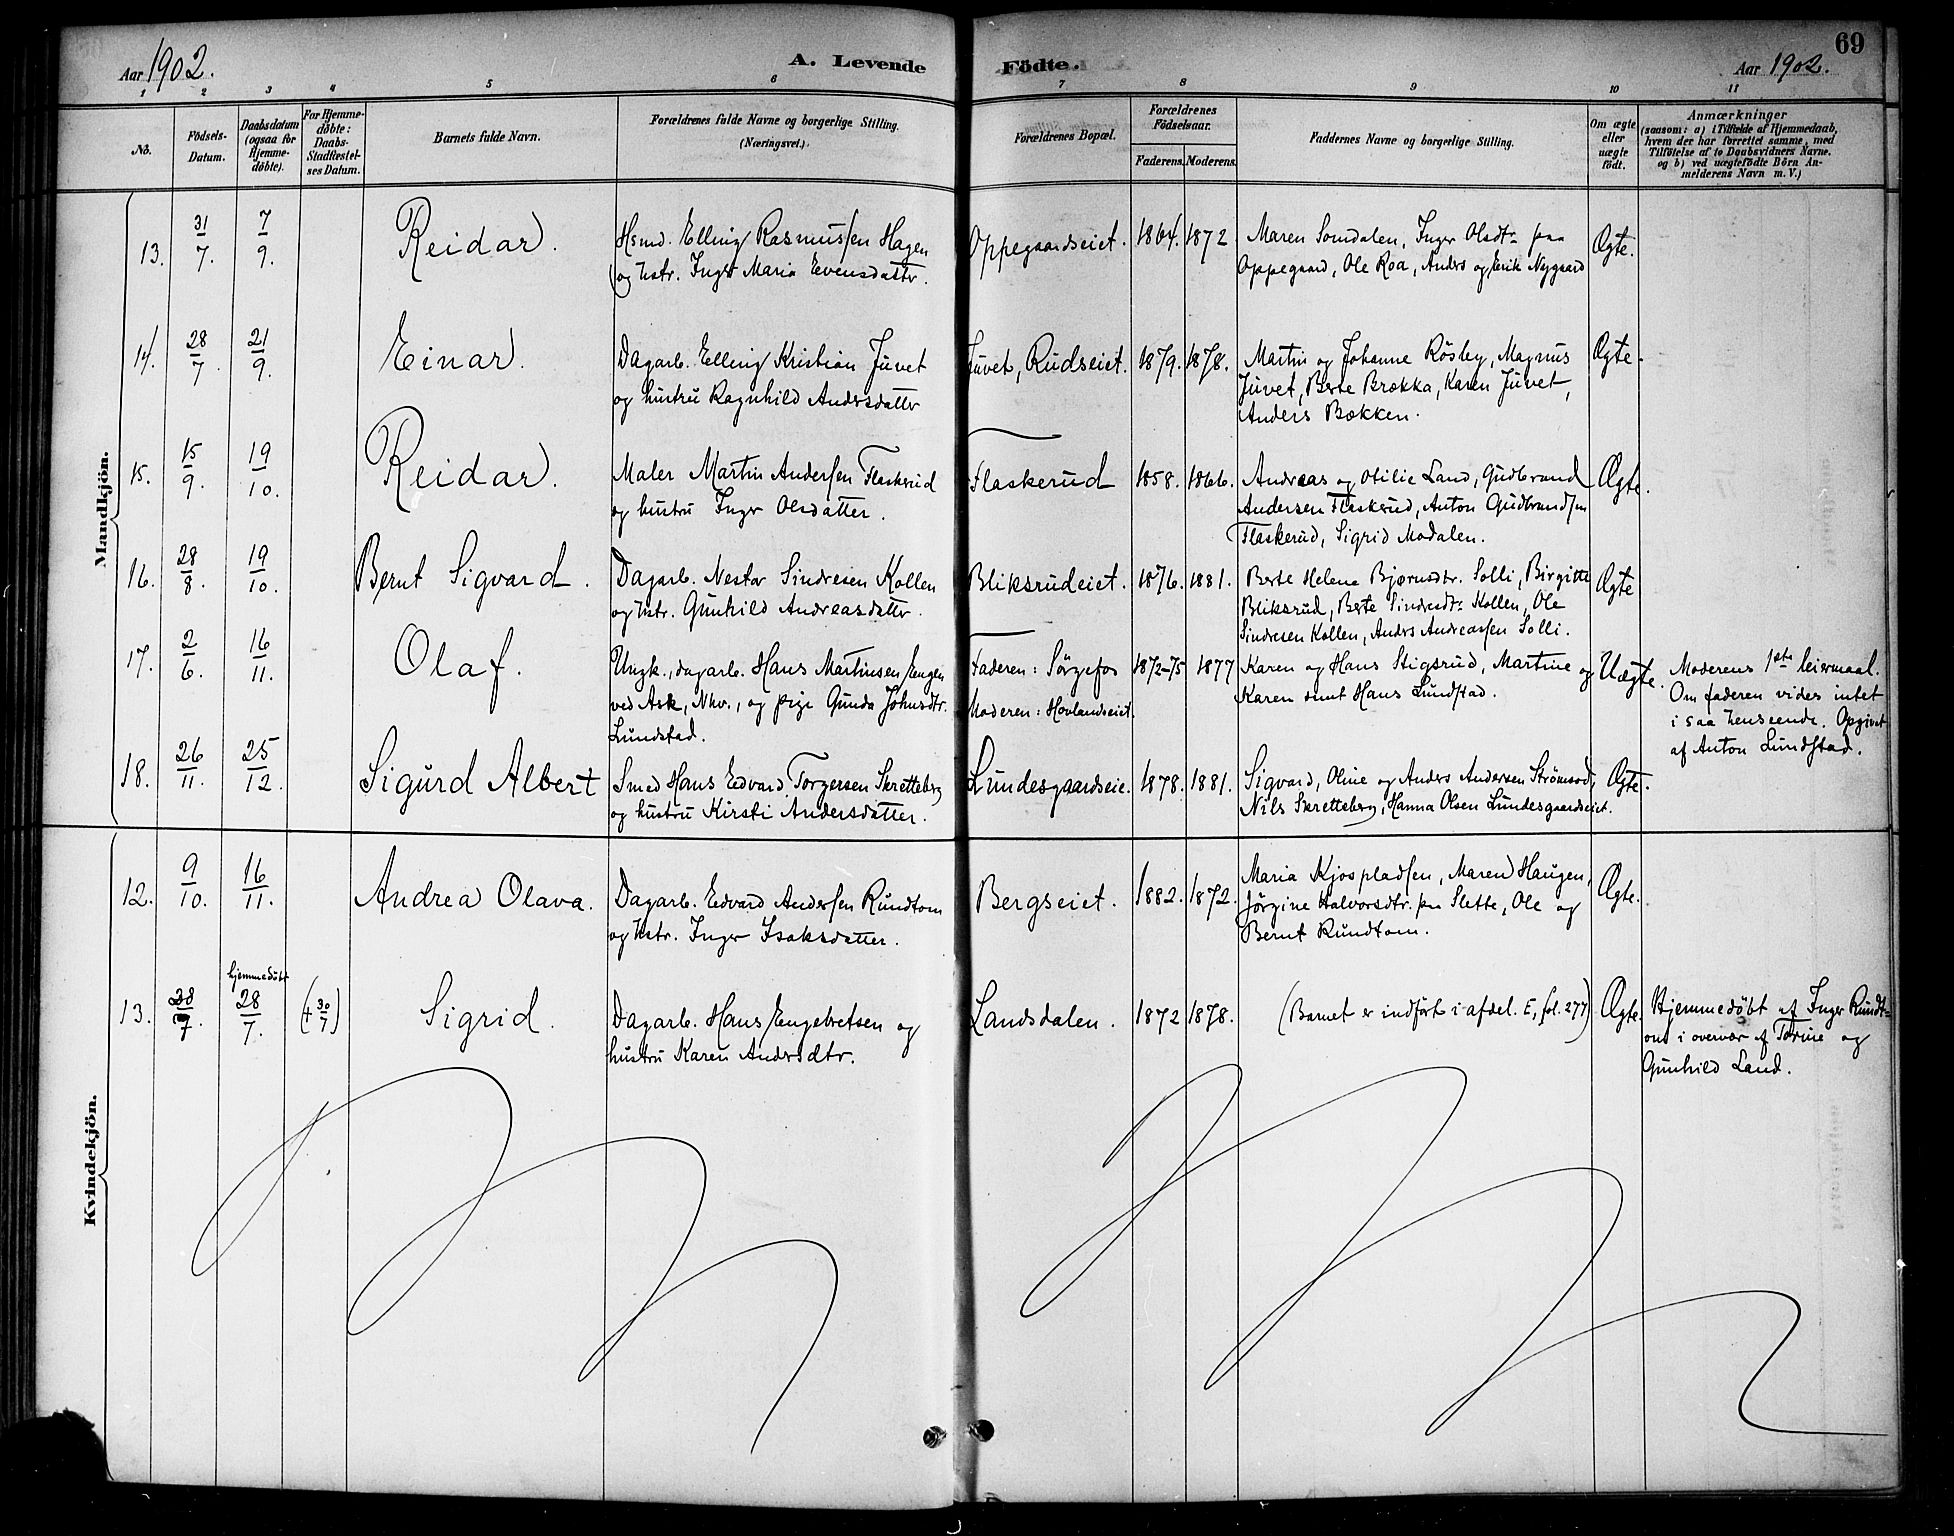 Aar 1902.
A. Levende
Födte.
Aar 1902.
69
1 2 3 4 5 6 7 8 9 10 11
No.
Födsels-
Datum.
Daabsdatum
(ogsaa for
Hjemme-
döbte).
For Hjemme-
döbte:
Daabs-
Stadfæstel-
ses Datum.
Barnets fulde Navn.
Forældrenes fulde Navne og borgerlige Stilling.
(Næringsvei.)
Forældrenes Bopæl.
Forældrenes
Födselsaar.
Faderens. Moderens.
Faddernes Navne og borgerlige Stilling.
Om ægte
eller
uægte
födt.
Anmærkninger
(saasom: a) i Tilfælde af Hjemmedaab,
hvem der har forrettet samme, med
Tilföielse af to Daabsvidners Navne,
og b) ved uægtefödte Börn An-
melderens Navn m. V.)
Mandkjön.
13. 31/7. 7/9. Reidar.
Hsmd. Elling Rasmussen Hagen
og hstr. Inger Maria Evensdatter.
Oppegaardseiet. 1864. 1872
Maren Somdalen, Inger Olsdtr. paa
Oppegaard, Ole Roa, Anders og Erik Nygaard
Ægte.
14. 28/7. 21/9. Einar.
Dagarb. Elling Kristian Juvet
og hustru Ragnhild Andersdatter
Juvet, Rudseiet. 1879. 1878.
Martin og Johanne Rösby, Magnus
Juvet, Berte Brækka, Karen Juvet,
Anders Bækken.
Ægte.
15. 15/9. 19/10. Reidar.
Maler Martin Andersen Flaskerud
og hustru Inger Olsdatter.
Flaskerud 1858. 1866.
Andreas og Otilie Land, Gudbrand
Andersen Flaskerud, Anton Gudbrandsen
Flaskerud, Sigrid Modalen.
Ægte.
16. 28/8. 19/10. Bernt Sigvard.
Dagarb. Nestor Sindresen Kollen
og hstr. Gunhild Andreasdatter.
Bliksrudeiet. 1876. 1881.
Berte Helene Bjørnsdtr. Solli, Birgitte
Bliksrud, Berte Sindresdtr. Kollen, Ole
Sindresen Kollen, Anders Andreassen Solli.
Ægte
17. 2/6. 16/11. Olaf.
Ungk., dagarb. Hans Martinsen Engen
ved Ask, Nkv., og pige Gunda Johnsdtr.
Lundstad.
Faderen: Sörgefos
Moderen: Hovlandseiet.
1872-75 1877
Karen og Hans Stigsrud, Martine og
Karen samt Hans Lundstad.
Uægte.
Moderens 1ste leiermaal.
Om faderen vides intet
i saa henseende. Opgivet
af Anton Lundstad.
18. 26/11. 25/12. Sigurd Albert
Smed Hans Edvard Torgersen Skretteberg
og hustru Kirsti Andersdatter.
Lundesgaardseie. 1878. 1881.
Sigvard, Oline og Anders Andersen Strömsod,
Nils Skretteberg, Hanna Olsen Lundesgaardseiet.
Ægte.
Kvindekjön.
12. 9/10. 16/11. Andrea Olava.
Dagarb. Edvard Andersen Rundtom
og hstr. Inger Isaksdatter.
Bergseiet. 1882. 1872.
Maria Kjospladsen, Maren Haugen,
Jörgine Halvorsdtr. paa Slette, Ole og
Bernt Rundtom.
Ægte.
13. 28/7. hjemmedöbt 28/7. († 30/7) Sigrid.
Dagarb. Hans Engebretsen og
hustru Karen Andersdtr.
Landsdalen. 1872 1878.
(Barnet er indfört i afdel. E, fol. 277)
Ægte.
Hjemmedöbt af Inger Rundt-
om i overvær af Torine og
Gunhild Land.